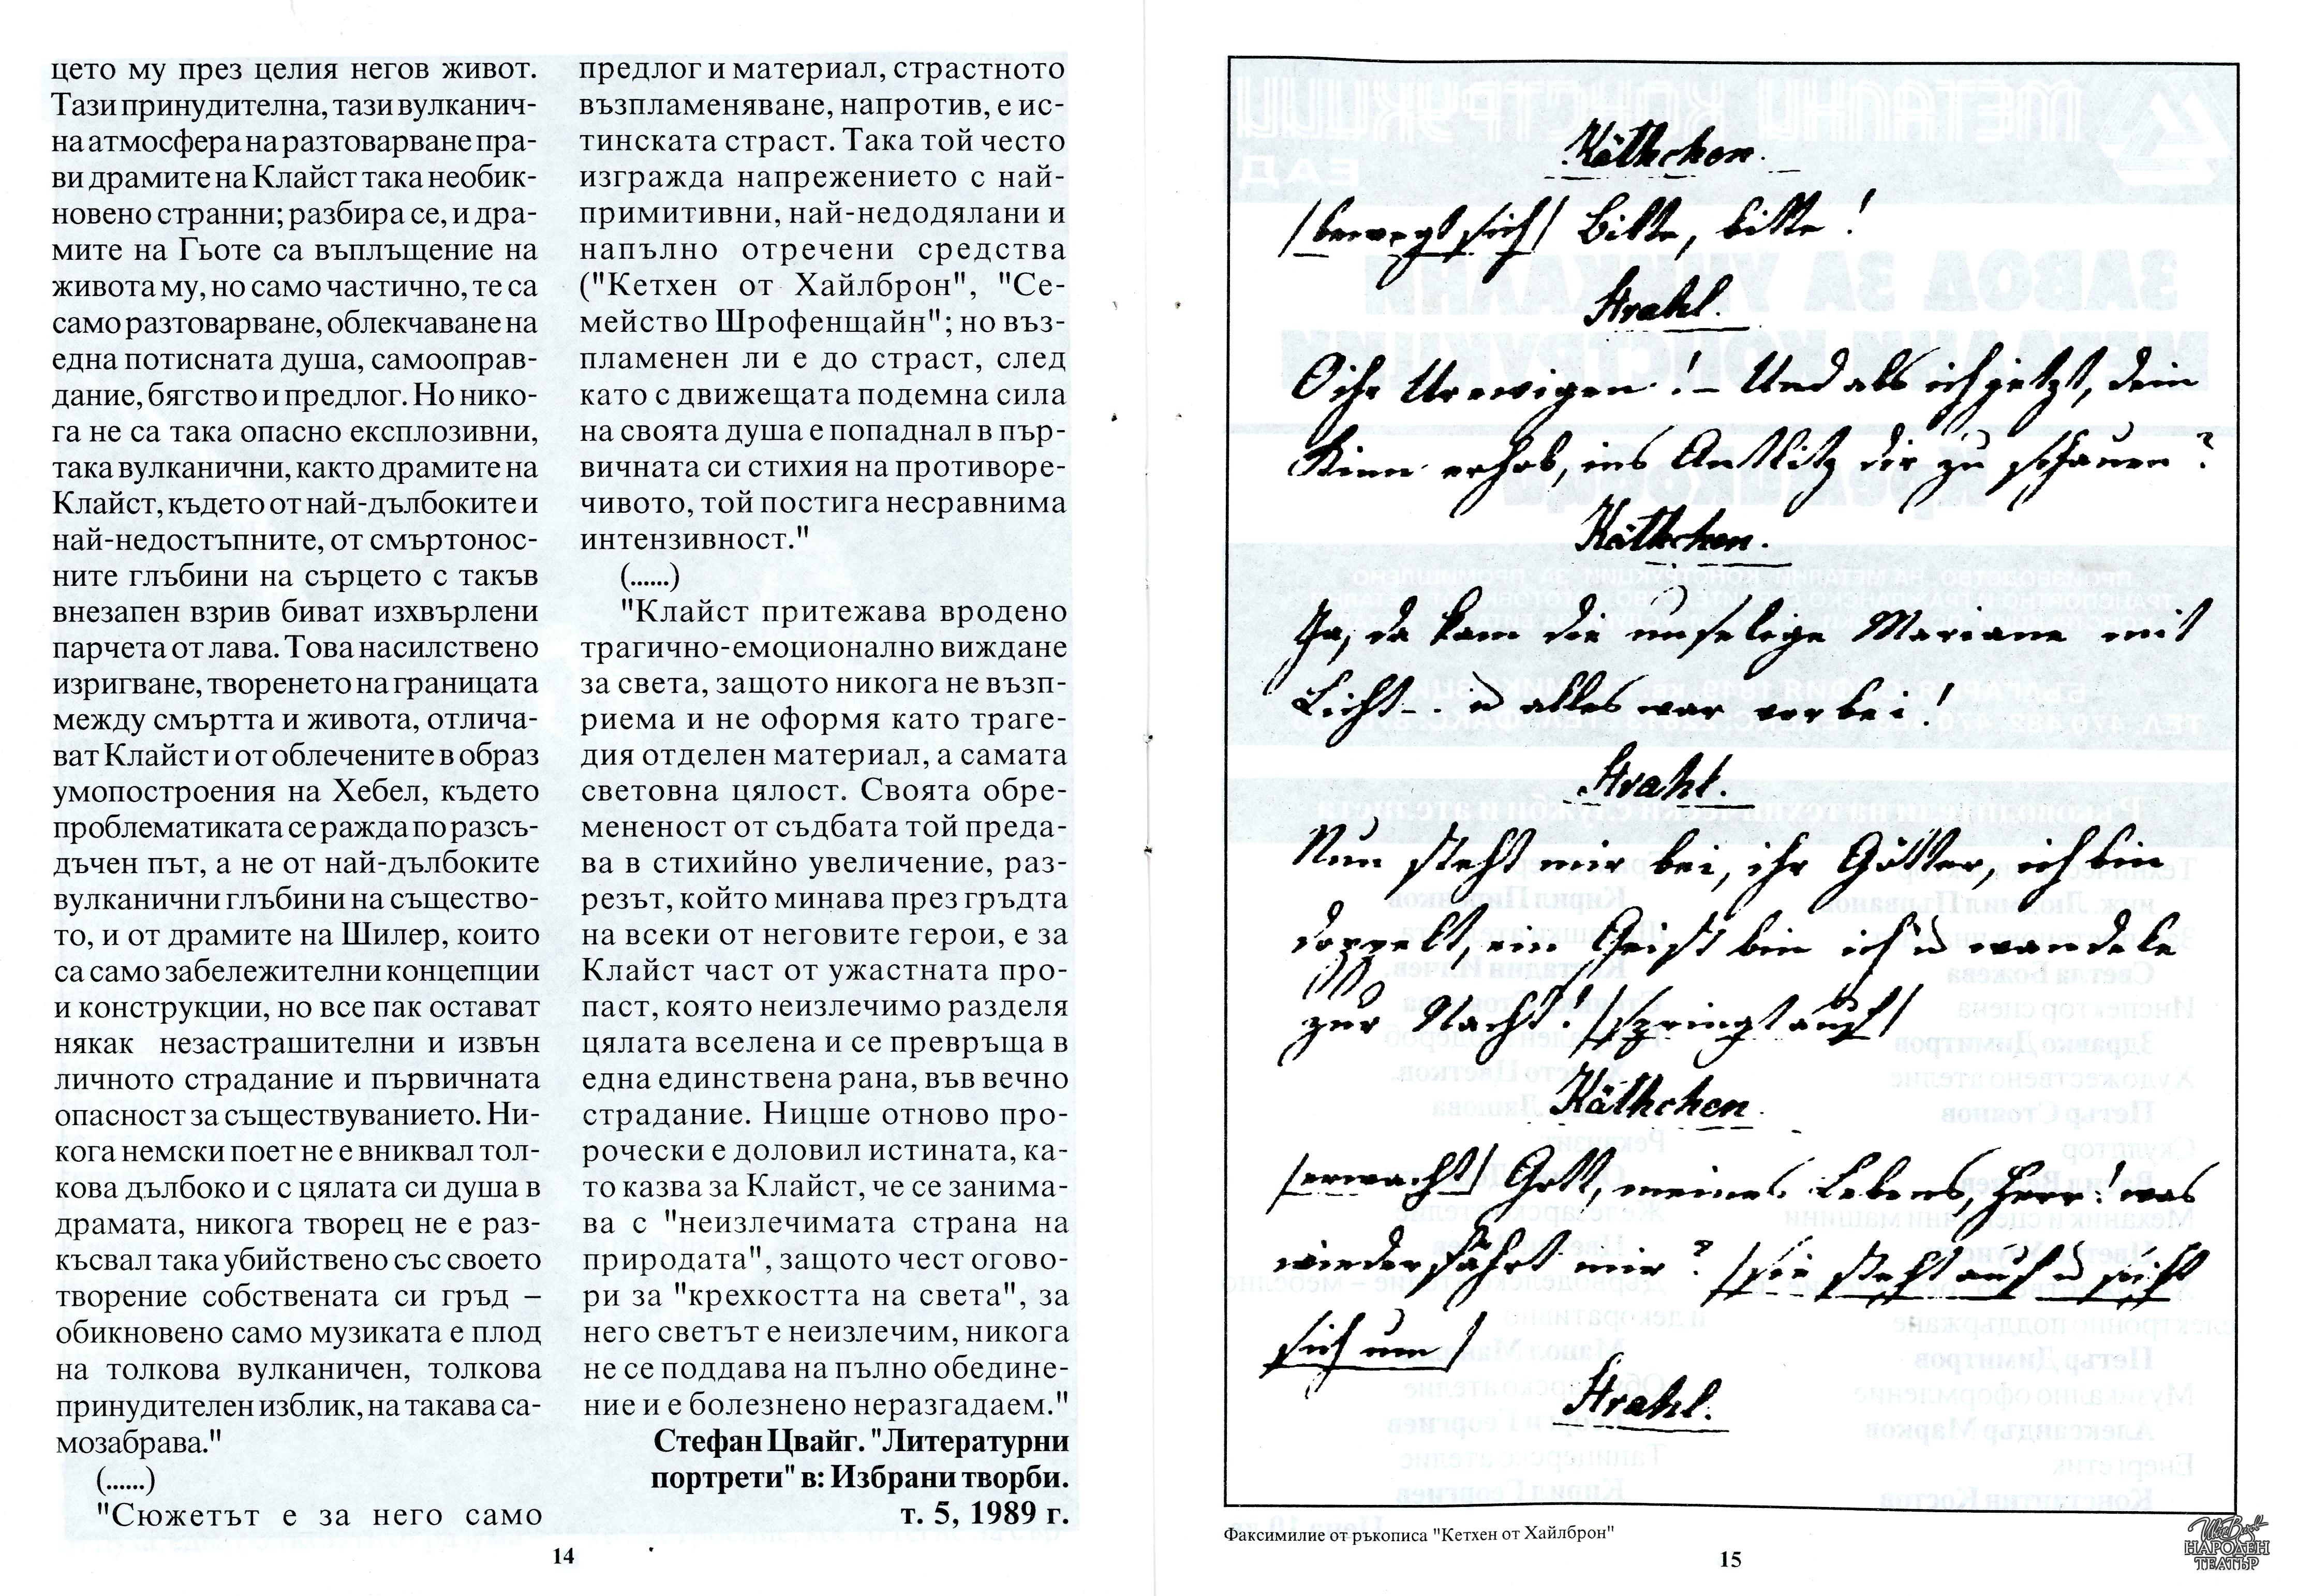 цето му през целия негов живот.
Тази принудителна, тази вулканич-
на атмосфера на разтоварване пра-
ви драмите на Клайст така необик-
новено странни; разбира се, и дра-
мите на Гьоте са въплъщение на
живота му, но само частично, те са
само разтоварване, облекчаване на
една потисната душа, самооправ-
дание, бягство и предлог. Но нико-
га не са така опасно експлозивни,
така вулканични, както драмите на
Клайст, където от най-дълбоките и
най-недостъпните, от смъртонос-
ните глъбини на сърцето с такъв
внезапен взрив биват изхвърлени
парчета от лава. Това насилствено
изригване, творенето на границата
между смъртта и живота, отлича-
ват Клайст и от облечените в образ
умопостроения на Хебел, където
проблематиката се ражда по разсъ-
дъчен път, а не от най-дълбоките
вулканични глъбини на същество-
то, и от драмите на Шилер, които
са само забележителни концепции
и конструкции, но все пак остават
някак незастрашителни и извън
личното страдание и първичната
опасност за съществуванието. Ни-
кога немски поет не е вниквал тол-
кова дълбоко и с цялата си душа в
драмата, никога творец не е раз-
късвал така убийствено със своето
творение собствената си гръд –
обикновено само музиката е плод
на толкова вулканичен, толкова
принудителен изблик, на такава са-
мозабрава."
(......)
"Сюжетът е за него само
14
предлог и материал, страстното
възпламеняване, напротив, е ис-
тинската страст. Така той често
изгражда напрежението с най-
примитивни, най-недодялани и
напълно отречени средства
("Кетхен от Хайлброн", "Се-
мейство Шрофенщайн"; но въз-
пламенен ли е до страст, след
като с движещата подемна сила
на своята душа е попаднал в пър-
вичната си стихия на противоре-
чивото, той постига несравнима
интензивност."
(......)
"Клайст притежава вродено
трагично-емоционално виждане
за света, защото никога не възп-
риема и не оформя като траге-
дия отделен материал, а самата
световна цялост. Своята обре-
мененост от съдбата той преда-
ва в стихийно увеличение, раз-
резът, който минава през гръдта
на всеки от неговите герои, е за
Клайст част от ужастната про-
паст, която неизлечимо разделя
цялата вселена и се превръща в
една единствена рана, във вечно
страдание. Ницше отново про-
рочески е доловил истината, ка-
то казва за Клайст, че се занима-
ва с "неизлечимата страна на
природата", защото чест огово-
ри за "крехкостта на света", за
него светът е неизлечим, никога
не се поддава на пълно обедине-
ние и е болезнено неразгадаем."
Стефан Цвайг. "Литературни
портрети" в: Избрани творби.
т. 5, 1989 г.
Käthchen.
/bewegt sich/ Bitte, bitte!
Strahl.
O ihr Urewigen! – Und als ich jetzt, dein
Kinn erhob, ins Antlitz dir zu schauen?
Käthchen.
Ja, da kam die unselige Mariane mit
Licht – u alles war vorbei!
Strahl.
Nun steht mir bei, ihr Götter, ich bin
doppelt, ein Geist bin ich u wandele
zur Nacht. /springt auf/
Käthchen.
/erwacht/ Gott, meines Lebens, Herr! was
wiederfährt mir? /sie steht auf u sieht
sich um/
Strahl.
Факсимилие от ръкописа "Кетхен от Хайлброн"
15
НАРОДЕН
ТЕАТЪР